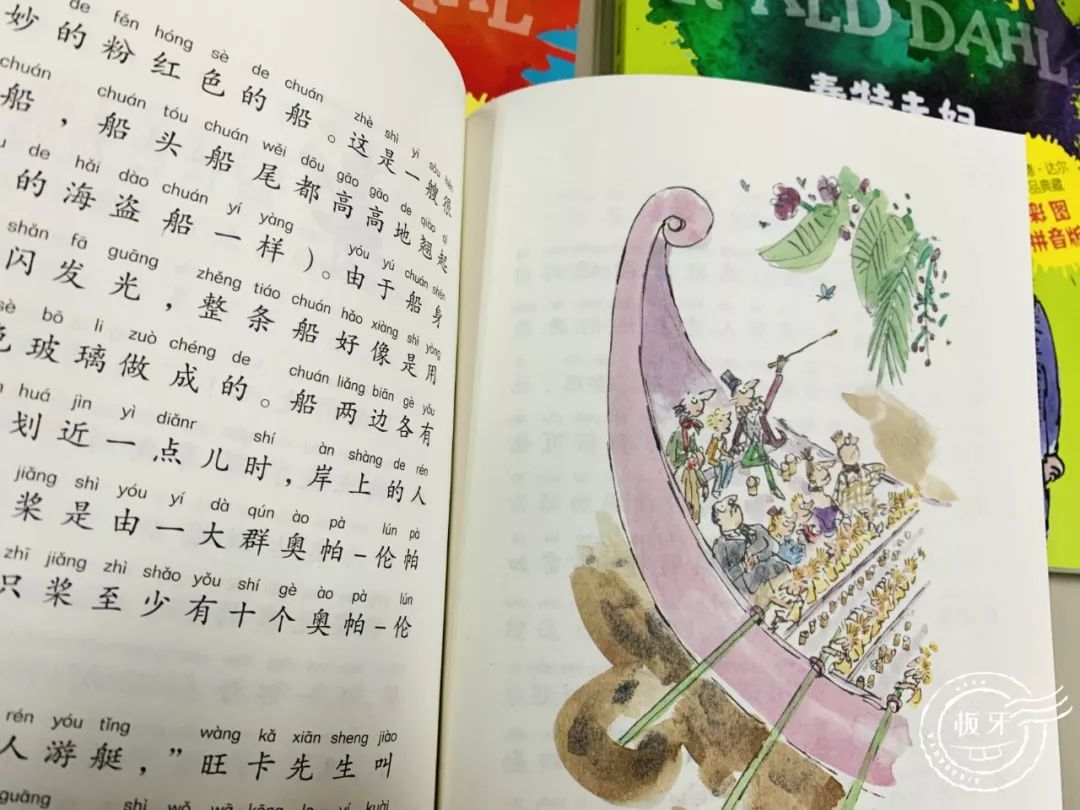 de fěn hóng sè de chuán zhè shì yì sōu hěn
妙的粉红色的船。这是一艘很
chuán chuán tóu chuán wěi dōu gāo gāo de qiào qǐ
船，船头船尾都高高地翘起
de hǎi dào chuán yí yàng yóu yú chuán shēn
的海盗船一样）。由于船身
shǎn fā guāng zhěng tiáo chuán hǎo xiàng shì yòng
闪发光，整条船好像是用
sè bō li zuò chéng de chuán liǎng biān gè yǒu
色玻璃做成的。船两边各有
huá jìn yì diǎnr shí àn shàng de rén
划近一点儿时，岸上的人
jiǎng shì yóu yí dà qún ào pà lún pà
桨是由一大群奥帕-伦帕
zhī jiǎng zhì shǎo yǒu shí gè ào pà lún
只桨至少有十个奥帕-伦
rén yóu tǐng wàng kǎ xiān sheng jiào
人游艇，”旺卡先生叫
guāng shì wǒ
DAHL
·达尔
品典藏
彩图
拼音版
板牙